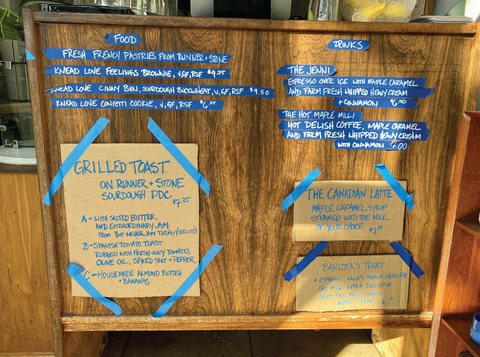 FOOD
FRESH FRENCH PASTRIES FROM RUNNER + STONE
KNEAD LOVE FEELINGS BROWNIE, V, GF, RSF $9.25
KNEAD LOVE CINNY BUN, SOURDOUGH BUCKWHEAT, V, GF, RSF $9.50
KNEAD LOVE CONFETTI COOKIE, V, GF, RSF
GRILLED TOAST
ON RUNNER + STONE
SOURDOUGH PDC
$7.25
A - WITH SALTED BUTTER
AND EXTRAORDINARY JAM
FROM BUT NEVER JAM TODAY
B - SPANISH TOMATO TOAST
RUBBED WITH FRESH JUICY TOMATO,
OLIVE OIL, SPICED SALT + PEPPER
C - HOUSEMADE ALMOND BUTTER
+ BANANAS
DRINKS
THE JENNI
ESPRESSO OVER ICE WITH MAPLE CARAMEL
AND FARM FRESH WHIPPED HEAVY CREAM
+ CINNAMON $6.50
THE HOT MAPLE MILLI
HOT DELISH COFFEE, MAPLE CARAMEL
AND FARM FRESH WHIPPED HEAVY CREAM
WITH CINNAMON
THE CANADIAN LATTE
MAPLE CARAMEL SYRUP
STEAMED INTO THE MILK
OF YOUR CHOICE
BARISTA'S TREAT